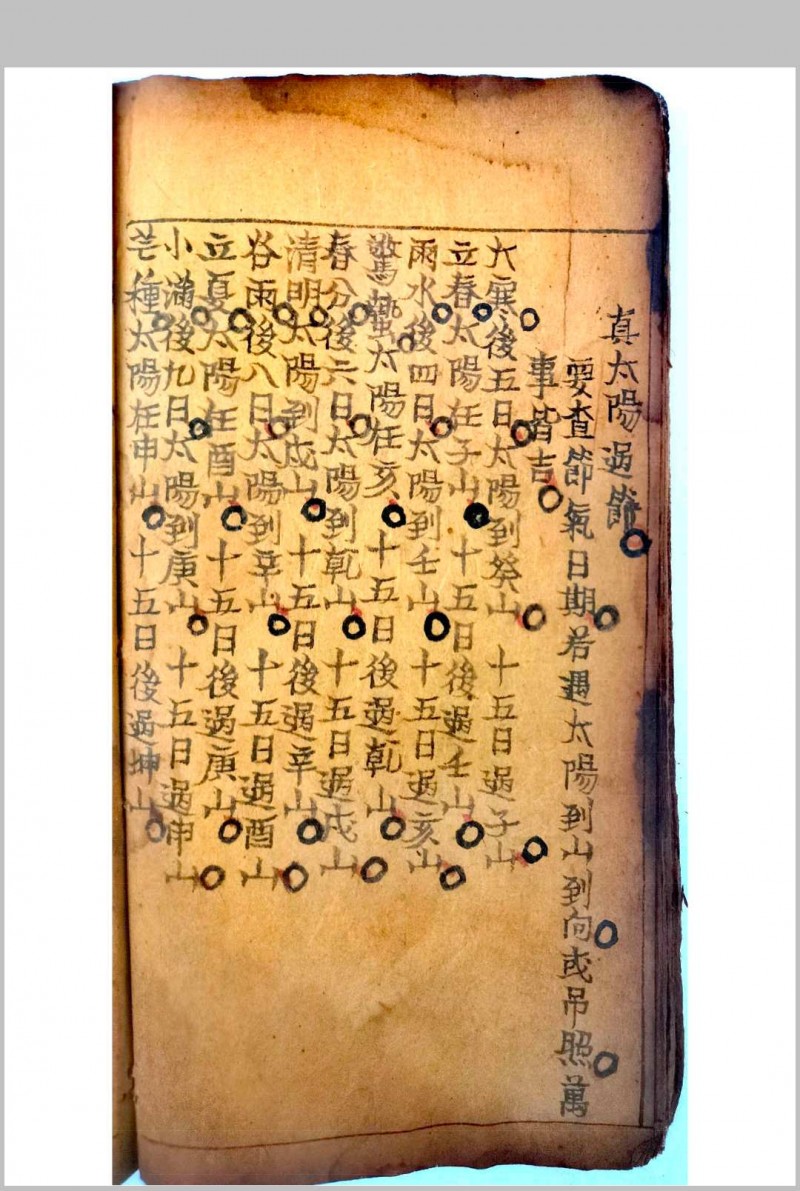 真太陽過節
要查節氣日期若遇太陽到山到向或吊照萬
事皆吉
大寒後五日太陽到癸山十五日過子山
立春太陽在子山十五日後過壬山
雨水後四日太陽到壬山十五日過亥山
驚蟄太陽在亥十五日後過乾山
春分後六日太陽到乾山十五日過戌山
清明太陽到戌山十五日後過辛山
谷雨後八日太陽到辛山十五日過酉山
立夏太陽在酉山十五日後過庚山
小滿後九日太陽到庚山十五日過申山
芒種太陽在申山十五日後過坤山